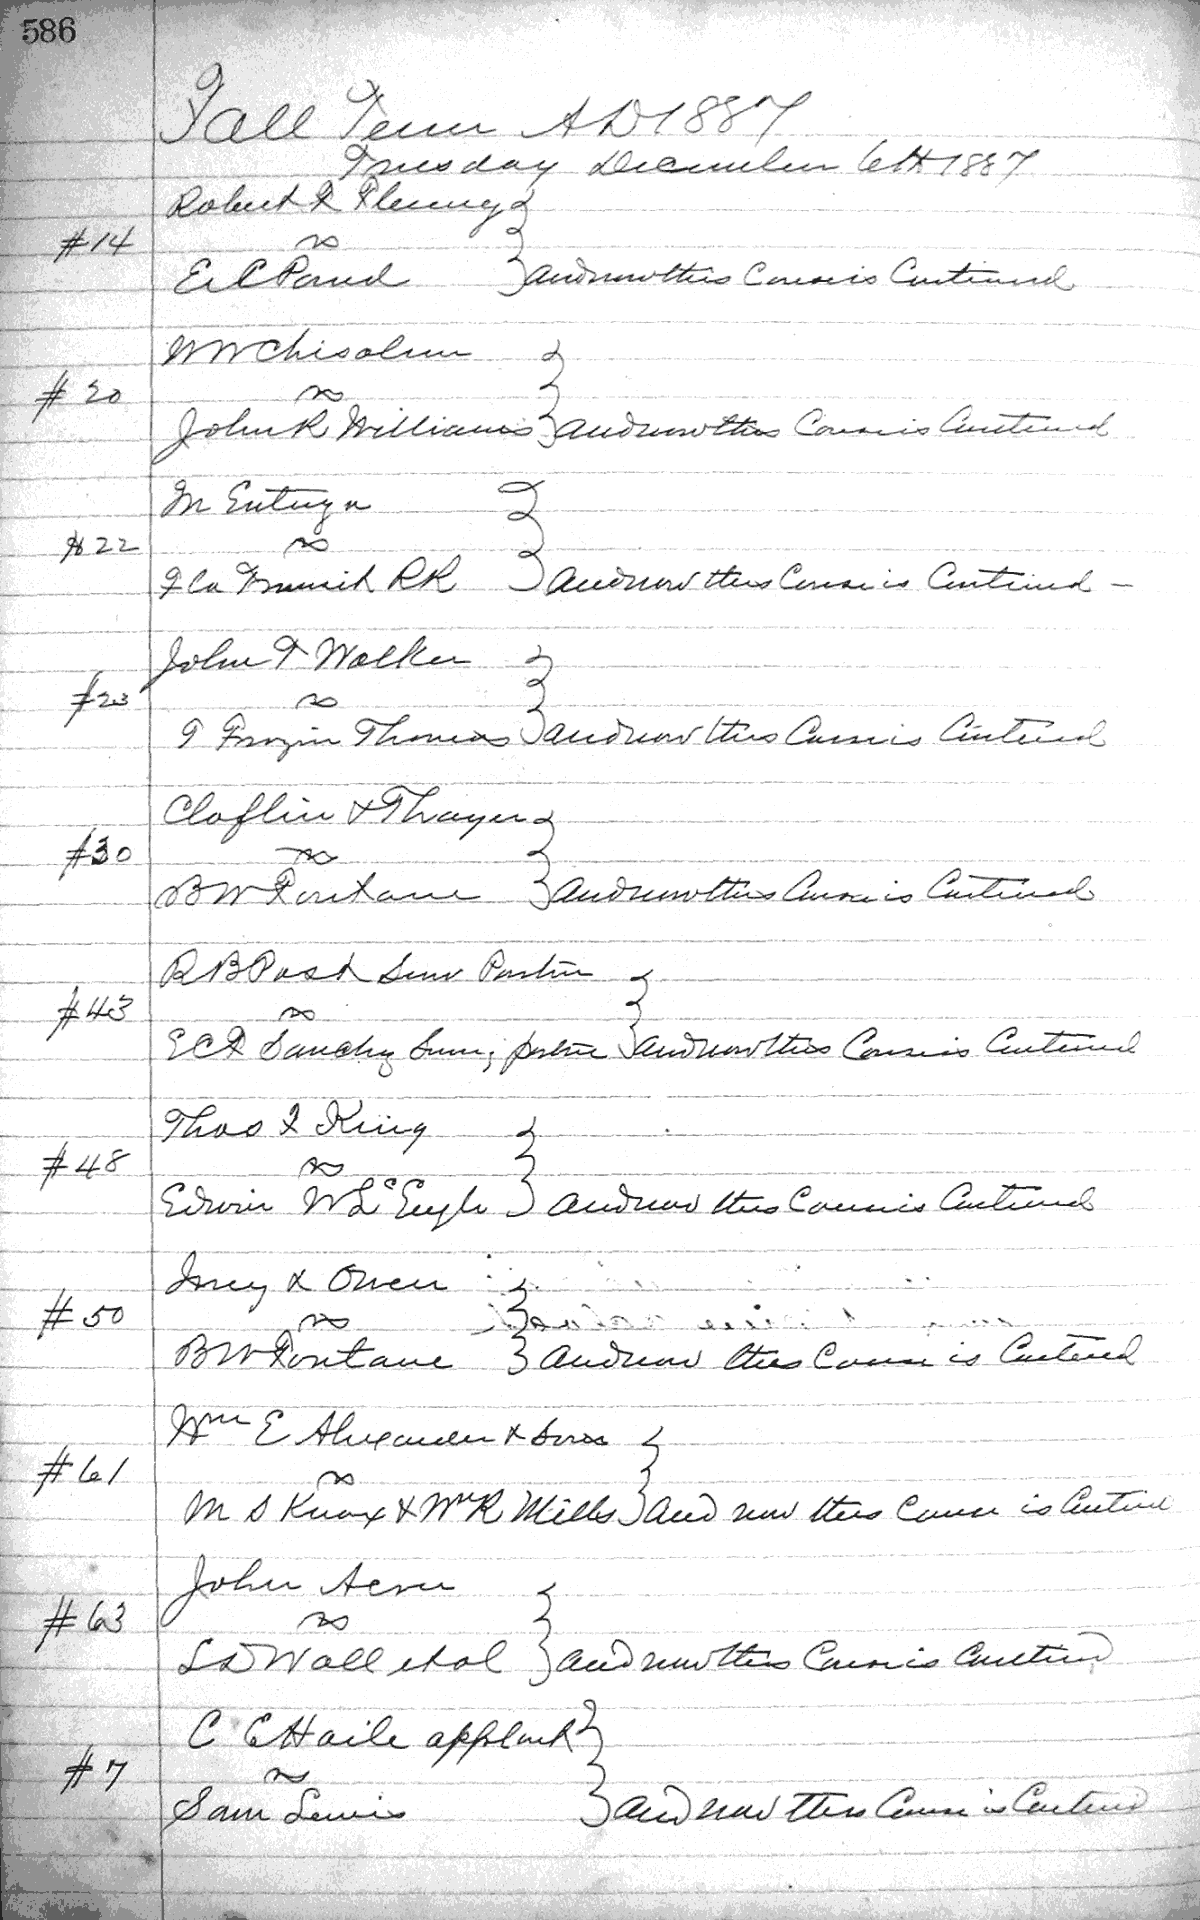 586
Fall Term AD 1887
Tuesday December 6th 1887
Robert F Fleming
#14 vs
E C Pond } and now this Cause is Continued
W W Chisolm
#20 vs
John R Williams } and now this Cause is Continued
M Endel
#22 vs
Fla Transit RR } and now this Cause is Continued –
John T Walker
#23 vs
T Frazier Thomas } and now this Cause is Continued
Claflin & Thayer
#30 vs
B W Fontane } and now this Cause is Continued
R B Post Surv Partner
#43 vs
E C F Sanchez Surv partner } and now this Cause is Continued
Thos F King
#48 vs
Edwin W LcEngle } and now this Cause is Continued
& Owen
#50 vs
B W Fontane } and now this Cause is Continued
Wm E Alexander & Sons
#61 vs
M S Knox & Wm R Mills } and now this Cause is Continued
John
#63 vs
L D Wall et al } and now this Cause is Continued
C E Haile applant
#7 vs
Sam Lewis } and now this Cause is Continued